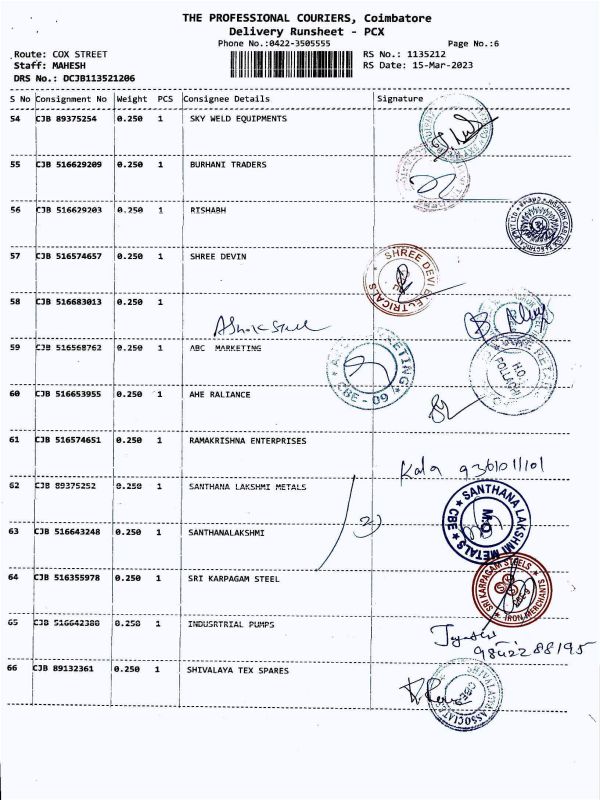 THE PROFESSIONAL COURIERS, Coimbatore
Delivery Runsheet - PCX
Phone No.:0422-3505555
Page No.:6
Route: COX STREET
RS No.: 1135212
Staff: MAHESH
RS Date: 15-Mar-2023
DRS No.: DCJB113521206
S No Consignment No Weight PCS Consignee Details Signature
54 CJB 89375254 0.250 1 SKY WELD EQUIPMENTS
55 CJB 516629209 0.250 1 BURHANI TRADERS
56 CJB 516629203 0.250 1 RISHABH
57 CJB 516574657 0.250 1 SHREE DEVIN
SHREE DEVI ELECTRICALS
58 CJB 516683013 0.250 1
Ashok Steel
59 CJB 516568762 0.250 1 ABC MARKETING
CBE - 09
H.O.
POLLACHI
60 CJB 516653955 0.250 1 AHE RALIANCE
61 CJB 516574651 0.250 1 RAMAKRISHNA ENTERPRISES
Kala 9361011101
62 CJB 89375252 0.250 1 SANTHANA LAKSHMI METALS
SANTHANA LAKSHMI METALS CBE
63 CJB 516643248 0.250 1 SANTHANALAKSHMI
2)
64 CJB 516355978 0.250 1 SRI KARPAGAM STEEL
SRI KARPAGAM STEELS
IRON MERCHANTS
65 CJB 516642380 0.250 1 INDUSRTRIAL PUMPS
9842288195
66 CJB 89132361 0.250 1 SHIVALAYA TEX SPARES